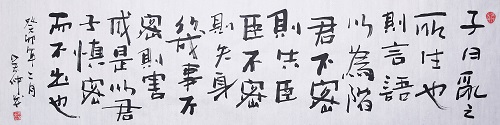 子曰亂之
所生也
則言語
以為階
君不密
則失臣
臣不密
則失身
幾事不
密則害
成是以君
子慎密
而不出也
癸卯年二月